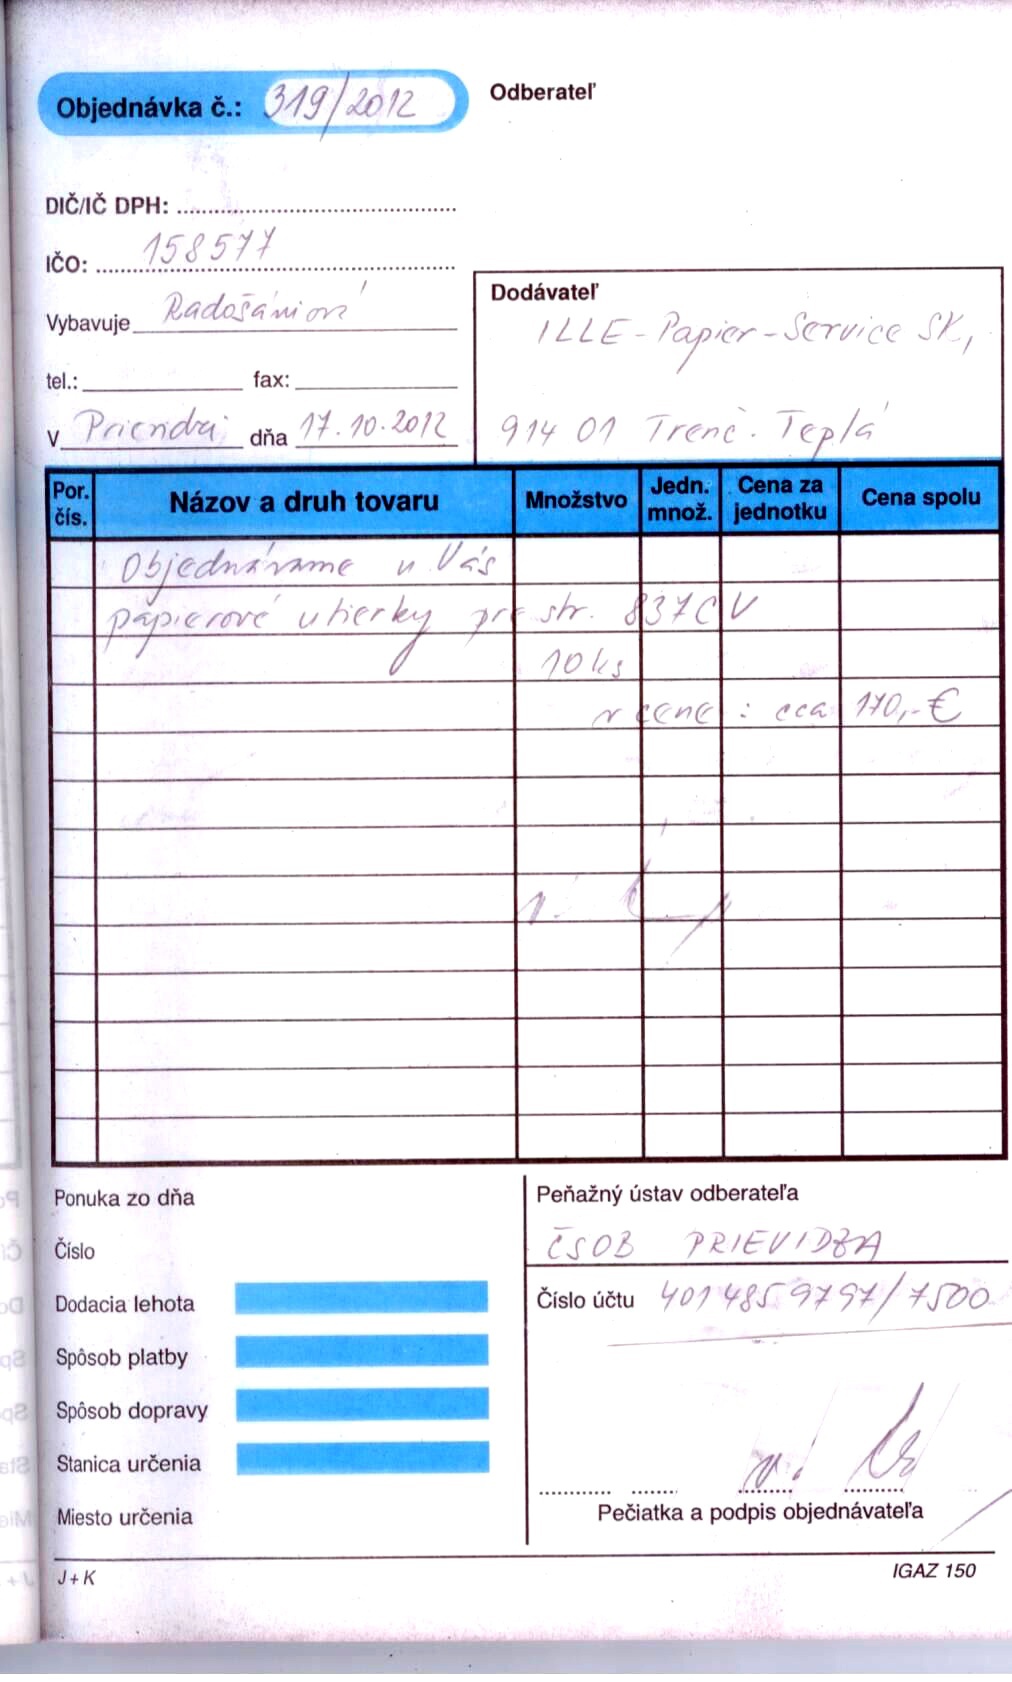 Objednávka č.: 319/2012
Odberateľ
DIČ/IČ DPH:
IČO: 158577
Vybavuje Radošániová
tel.: fax:
V Prievidzi dňa 17.10.2012
Dodávateľ
ILLE-Papier-Service SK,
914 01 Trenč. Teplá
Por. čís. Názov a druh tovaru Množstvo Jedn. množ. Cena za jednotku Cena spolu
Objednávame u Vás
papierové utierky pre str. 837CV
10ks
v cene : cca 170,-€
Ponuka zo dňa
Číslo
Dodacia lehota
Spôsob platby
Spôsob dopravy
Stanica určenia
Miesto určenia
Peňažný ústav odberateľa
ČSOB PRIEVIDZA
Číslo účtu 4014859797/7500
Pečiatka a podpis objednávateľa
J+K
IGAZ 150